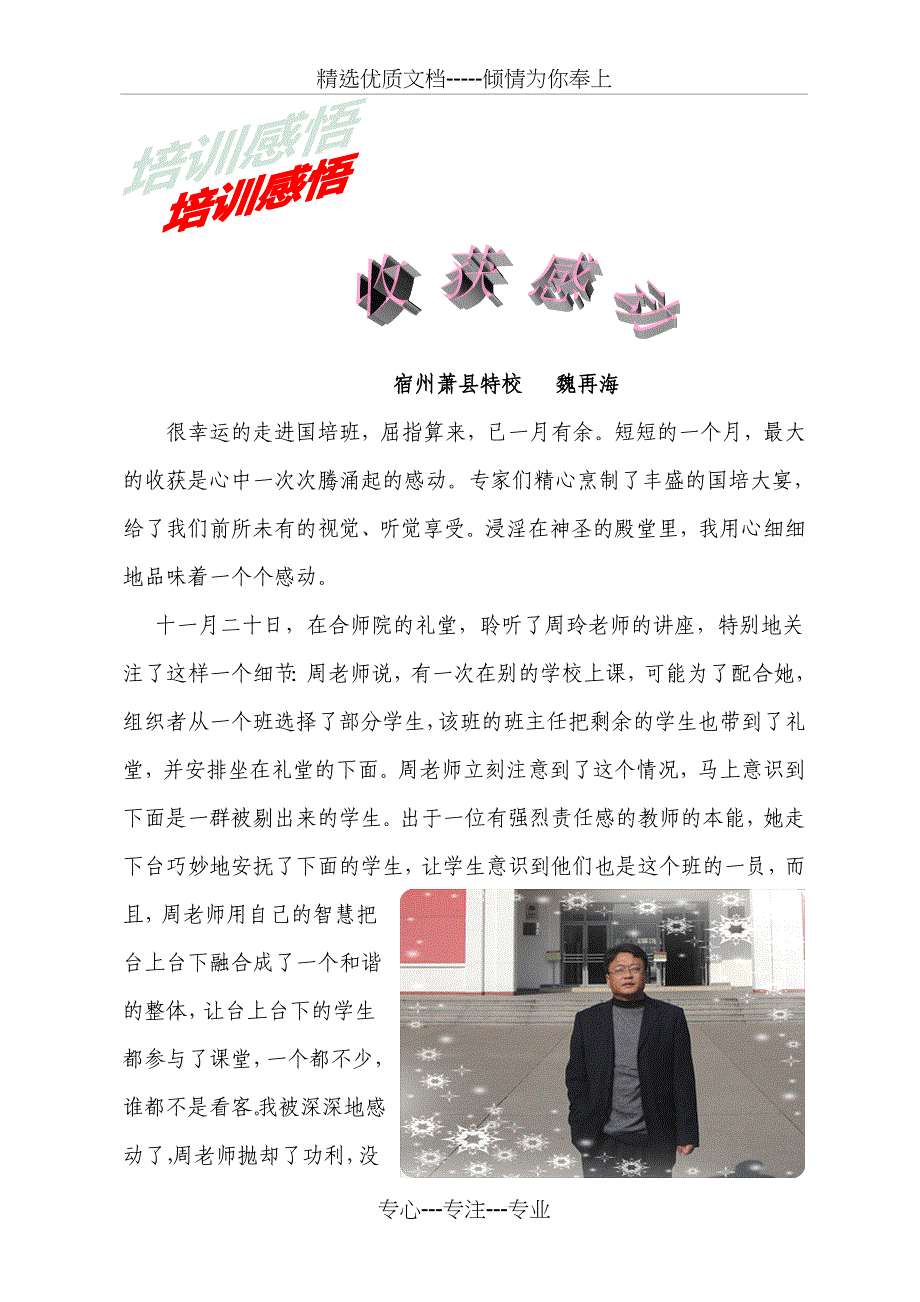 精选优质文档-----倾情为你奉上
培训感悟
培训感悟
收获感动
宿州萧县特校 魏再海
很幸运的走进国培班，屈指算来，已一月有余。短短的一个月，最大
的收获是心中一次次腾涌起的感动。专家们精心烹制了丰盛的国培大宴，
给了我们前所未有的视觉、听觉享受。浸淫在神圣的殿堂里，我用心细细
地品味着一个个感动。
十一月二十日，在合师院的礼堂，聆听了周玲老师的讲座，特别地关
注了这样一个细节：周老师说，有一次在别的学校上课，可能为了配合她，
组织者从一个班选择了部分学生，该班的班主任把剩余的学生也带到了礼
堂，并安排坐在礼堂的下面。周老师立刻注意到了这个情况，马上意识到
下面是一群被剔出来的学生。出于一位有强烈责任感的教师的本能，她走
下台巧妙地安抚了下面的学生，让学生意识到他们也是这个班的一员，而
且，周老师用自己的智慧把
台上台下融合成了一个和谐
的整体，让台上台下的学生
都参与了课堂，一个都不少，
谁都不是看客。我被深深地感
动了，周老师抛却了功利，没
专心---专注---专业